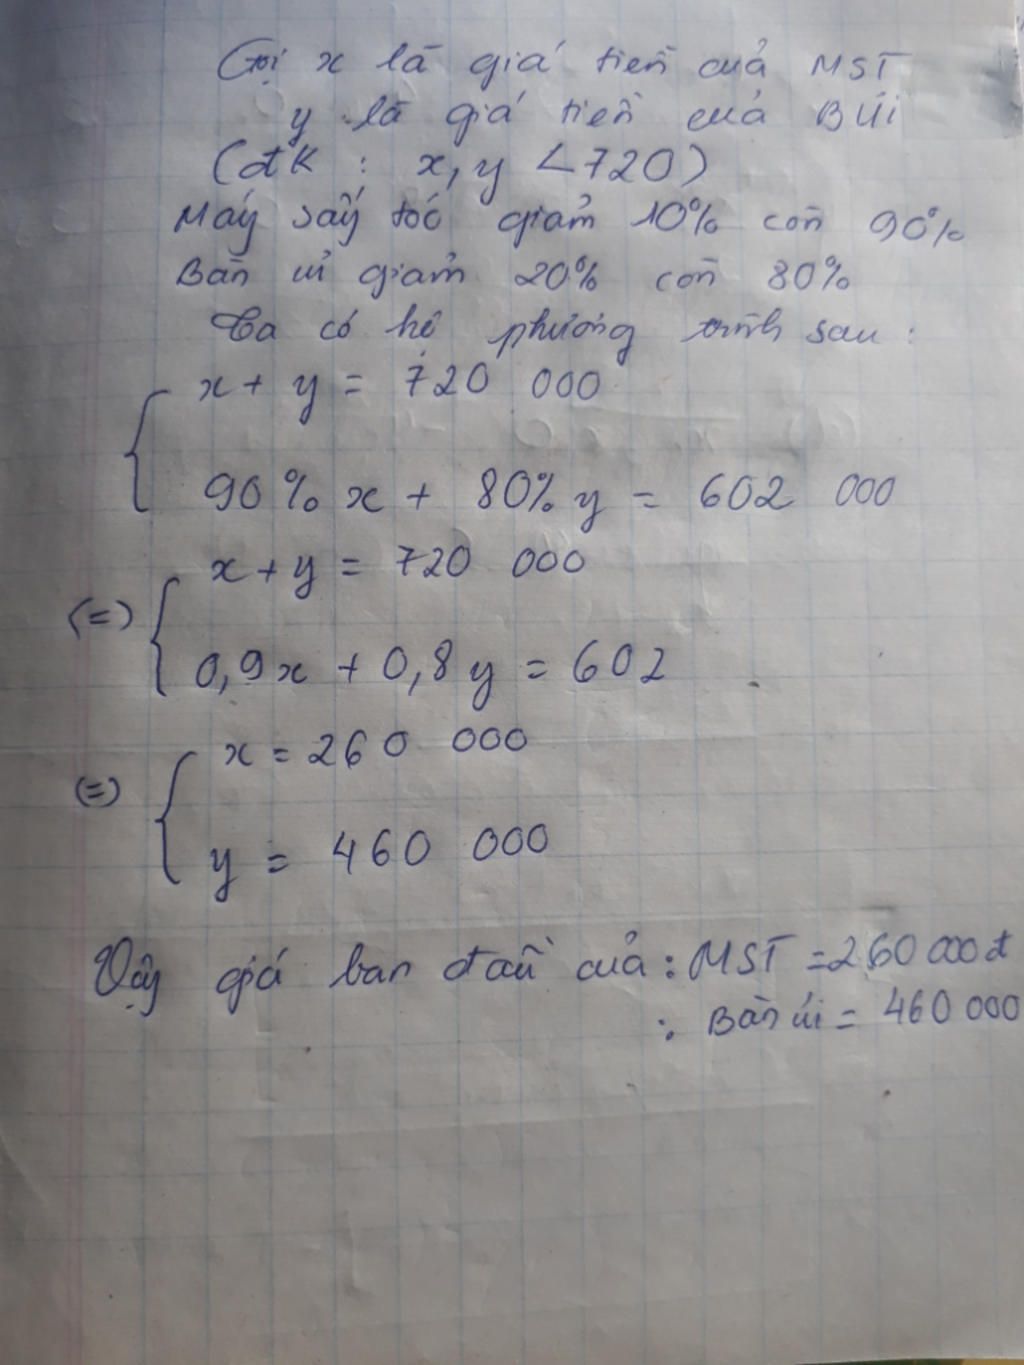 Gọi x là giá tiền của MST
y là giá tiền của BUi
(đK : x, y < 720)
Máy sấy tóc giảm 10% còn 90%
Bàn ủi giảm 20% còn 80%
Ta có hệ phương trình sau :
x + y = 720 000
90% x + 80% y = 602 000
x + y = 720 000
(=)
0,9x + 0,8y = 602
x = 260 000
(=)
y = 460 000
Vậy giá ban đầu của : MST = 260 000đ
: Bàn ủi = 460 000